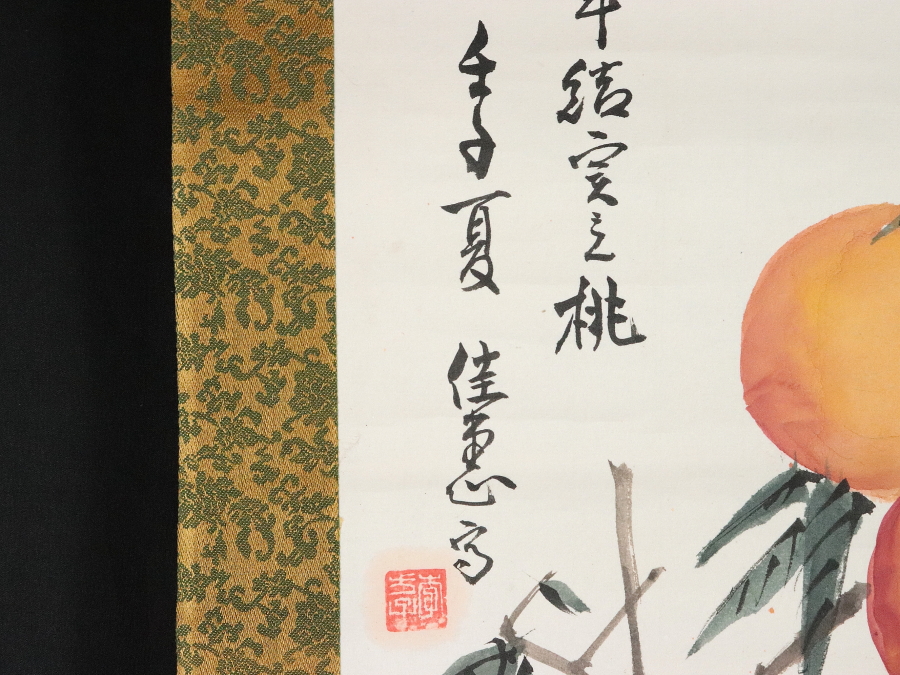 年結実之桃
壬子夏 佳恵写